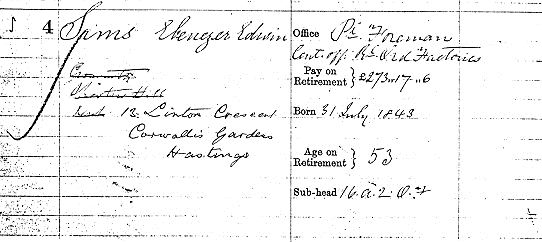 4 Sims Ebenezer Edwin
12 Linton Crescent
Cornwallis Gardens
Hastings
Office Pl. Foreman
Cont. off. Rl. Ord Factories
Pay on Retirement } £273..17..6
Born 31 July 1843
Age on Retirement } 53
Sub-head 16.a.2.